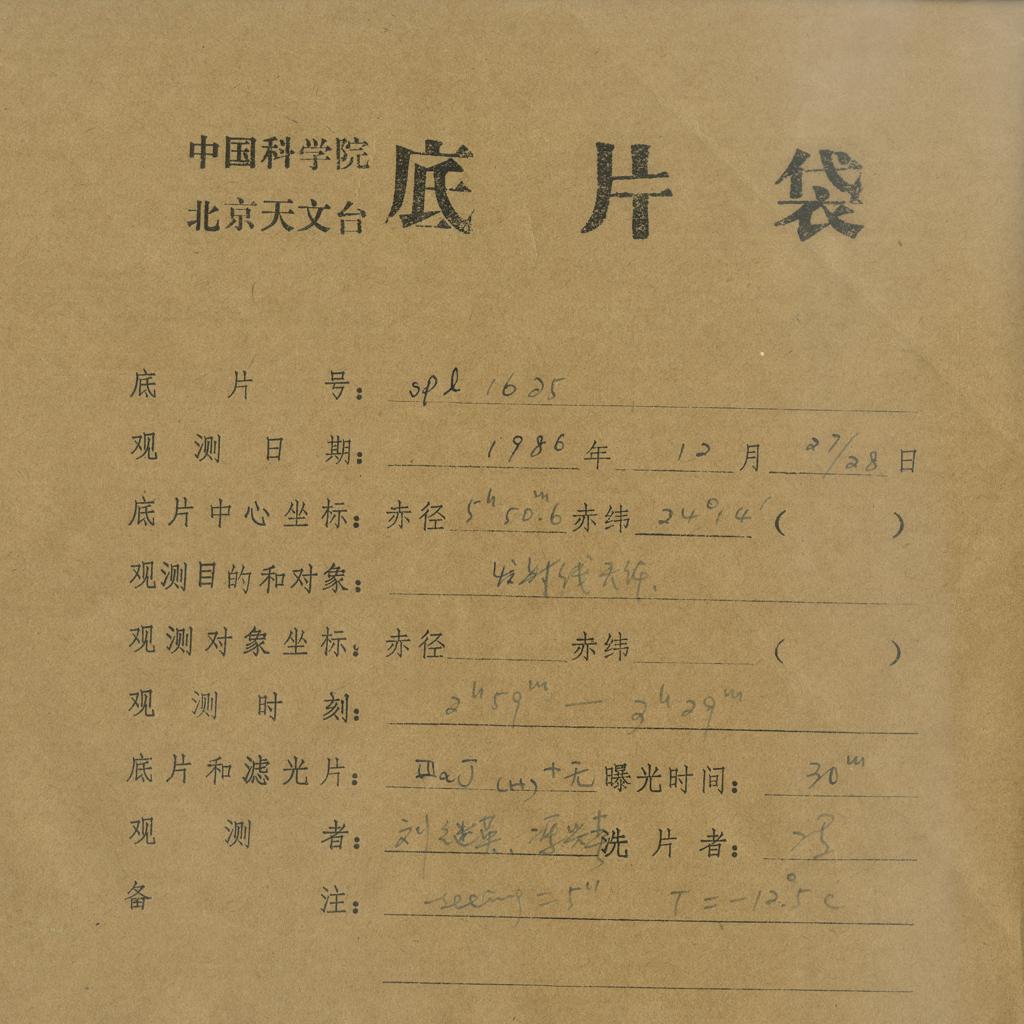 中国科学院
北京天文台
底片袋
底片号: spl 1625
观测日期: 1986年 12月 27/28日
底片中心坐标: 赤径 5ʰ50.ᵐ6 赤纬 24°14′ ( )
观测目的和对象: 射线天体.
观测对象坐标: 赤径 赤纬 ( )
观测时刻: 2ʰ59ᵐ — 3ʰ29ᵐ
底片和滤光片: ⅢaJ (H) + 无 曝光时间: 30ᵐ
观测者: 刘继英、 洗片者: 冯
备注: seeing = 5″ T = -12.°5 C